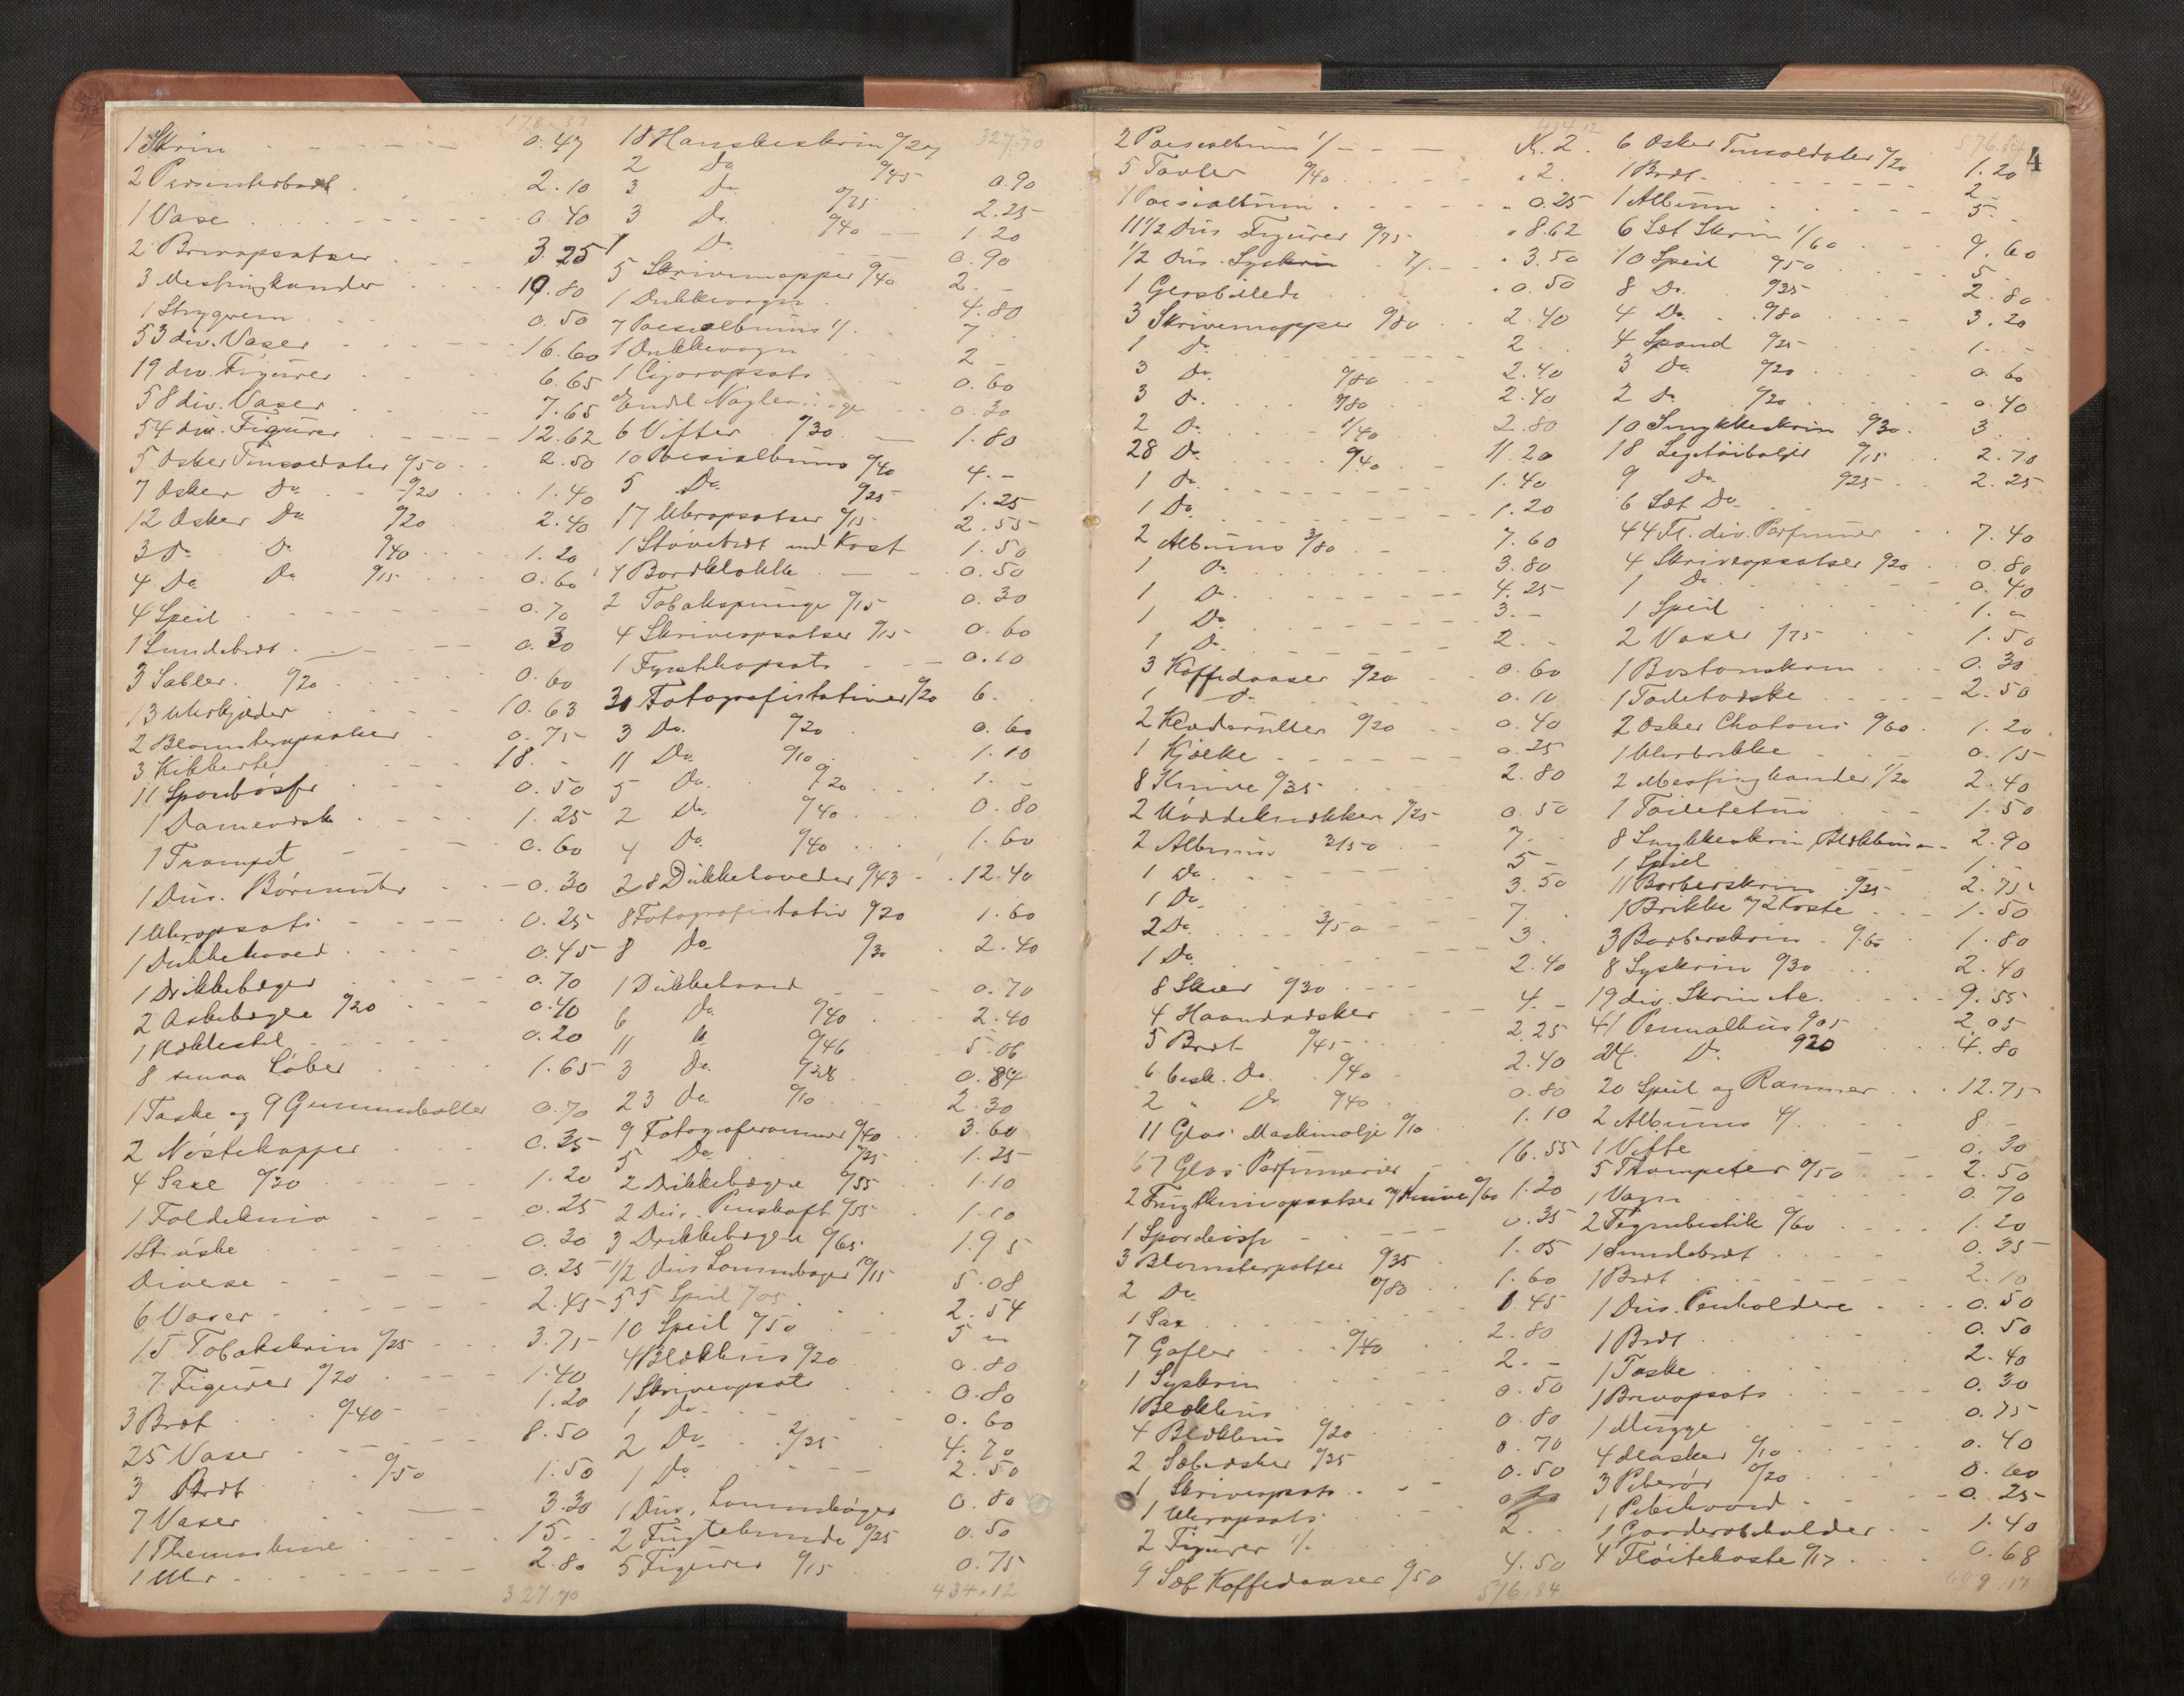 1 Skrin 0.47
2 Presenterbret 2.10
1 Vase 0.40
2 Brevopsatser 3.25
3 Messingkander 19.80
1 Strygrem 0.50
53 div. Vaser 16.60
19 div. Figurer 6.65
58 div. Vaser 7.65
54 div. Figurer 12.62
5 Æsker Tinsoldater 0/50 2.50
7 Æsker Do 0/20 1.40
12 Æsker Do 0/20 2.40
3 Do Do 0/40 1.20
4 Do Do 0/15 0.60
4 Speil 0.70
1 0.30
3 Sabler 0/20 0.60
13 Uhrkjæder 10.63
2 Blomsteropsatser 0.75
3 Kikkerter 18.-
11 Sparebøsser 0.50
1 Damevæske 1.25
1 Trompet 0.60
1 Dus. 0.30
1 Uhropsats 0.25
1 Dukkehoved 0.45
1 Drikkebæger 0.70
2 Askebægre 0/20 0.40
1 0.20
8 smaa Løber 1.65
1 Taske og 9 Gummiboller 0.70
2 0.35
4 Saxe 0/30 1.20
1 Foldekniv 0.25
1 0.30
Diverse 0.25
6 Vaser 2.45
15 Tobakskrin 0/25 3.75
7 Figurer 0/20 1.40
3 Bræt 0/40 1.20
25 Vaser 8.50
3 Bræt 0/50 1.50
7 Vaser 3.30
1 15.-
1 Uhr 2.80
327.70
327.70
18 Hanskeskrin 0/20
2 Do 0/45 0.90
3 Do 0/75 2.25
3 Do 0/40 1.20
1 Do 0.90
5 Skrivemapper 0/40 2.-
1 Dukkevogn 4.80
7 Poesialbums 1/. 7.
1 Dukkevogn 2.-
1 Cigaropsats 0.60
Endl Nagler 0.30
6 Vifter 0/30 1.80
10 Poesialbums 0/40 4.-
5 Do 0/25 1.25
17 Uhropsatser 0/15 2.55
1 Støvebræt med Kost 1.50
1 Bordklokke 0.50
2 Tobakspunge 0/15 0.30
4 Skriveopsatser 0/15 0.60
1 Fyrstikopsats 0.10
30 Fotografistativer 0/20 6.
3 Do. 0/20 0.60
11 Do 0/10 1.10
5 Do. 0/20 1.-
2 Do 0/40 0.80
4 Do. 0/40 1.60
28 Dukkehoveder 0/43 12.40
8 Fotografistativ 0/20 1.60
8 Do 0/30 2.40
1 Dukkehoved 0.70
6 Do 0/40 2.40
11 Do 0/46 5.06
3 Do. 0/28 0.84
23 Do 0/10 2.30
9 Fotograferammer 0/40 3.60
5 Do 0/25 1.25
2 Drikkebægre 0/55 1.10
2 Dus. Penskaft 0/55 1.10
3 Drikkebægre 0/65 1.95
1/2 Dus Lommebøger 10/15 5.08
55 Speil 2.54
10 Speil 0/50 5.-
4 Blækhus 0/20 0.80
1 Skriveopsats 0.80
1 Do 0.60
2 Do 2/35 4.70
1 Do 2.50
1 Dus. Lommebøger 0.80
2 0/25 0.50
5 Figurer 0/15 0.75
434.12
4
2 Poesialbums 1/- Kr. 2.
5 Tavler 0/40 " 2.
1 Poesialbum " 0.25
11 1/2 Dus Figurer 0/75 " 8.62
1/2 Dus. Syskrin 7/. " 3.50
1 Glasbillede " 0.50
3 Skrivemapper 0/80 2.40
1 Do 2
3 Do. 0/80 2.40
3 Do. 0/80 2.40
2 Do. 1/40 2.80
28 Do 0/40 11.20
1 Do 1.40
1 Do 1.20
2 Albums 3/80 7.60
1 Do 3.80
1 Do. 4.25
1 Do 3.-
1 Do 2.-
3 Kaffedaaser 0/20 0.60
1 Do. 0.10
2 Kladeruller 0/20 0.40
1 Kjælke 0.25
8 Knive 0/35 2.80
2 Nøddeknækker 0/25 0.50
2 Albums 3/50 7.
1 Do 5-
1 Do 3.50
2 Do. 3/50 7.
1 Do. 3.
8 Skier 0/30 2.40
4 Haandvæsker 4.-
5 Bræt 0/45 2.25
6 besk. Do. 0/40 2.40
2 " Do 0/40 0.80
11 Glas Maskinolje 0/10 1.10
67 Glas Parfumerier 16.55
2 Frugtknivopsatser m/Knive 0/60 1.20
1 Sparebøsse 0.35
3 Blomsterpotter 0/35 1.05
2 Do 0/80 1.60
1 Sax 0.45
7 Gafler 0/40 2.80
1 Syskrin 2.-
1 Blækhus 0.50
4 Blækhus 0/20 0.80
2 Sæbeæsker 0/35 0.70
1 Skriveopsats 0.50
1 Uhropsats
2 Figurer 1/. 2.
9 Sæt Kaffedaaser 0/50 4.50
576.84
576.84
6 Æsker Tinsoldater 0/20 1.20
1 Bræt 2.-
1 Album 5.-
6 Sæt Skrin 1/60 9.60
10 Speil 0/50 5.
8 Do. 0/35 2.80
4 Do. 0/80 3.20
4 Spand 0/25 1.-
3 Do 0/20 0.60
2 Do 0/20 0.40
10 Smykkeskrin 0/30 3.
18 Legetøibaljer 0/15 2.70
9 Do 0/25 2.25
6 Sæt Do
44 Fl. div. Parfumer 7.40
4 Skriveopsatser 0/20 0.80
1 Do 0.40
1 Speil 1.-
2 Vaser 0/75 1.50
1 Bostonskrin 0.30
1 2.50
2 Æsker Chatons 0/60 1.20
1 0.15
2 Messingkander 1/20 2.40
1 Toiletetui 1.50
8 Smykkeskrin, Blækhus 2.90
1 Speil 1.-
11 Barberskrin 0/25 2.75
1 Brikke m/ 2 Koste 1.50
3 Barberskrin 0/60 1.80
8 Syskrin 0/30 2.40
19 div. Skrin &c. 9.55
41 Pennalhus 0/05 2.05
24 Do. 0/20 4.80
20 Speil og Rammer 12.75
2 Albums 4/. 8-
1 Vifte 0.30
5 Trompeter 0/50 2.50
1 Vogn 0.70
2 Tegnebestik 0/60 1.20
1 0.35
1 Bræt 2.10
1 Dus. Penholdere 0.50
1 Bræt 0.50
1 Taske 2.40
1 Brevopsats 0.30
1 Mugge 0.75
4 Masker 0/10 0.40
3 Piberør 0/20 0.60
1 Pibehoved 0.25
1 Garderobeholder 1.40
4 Fløitekoste 0/17 0.68